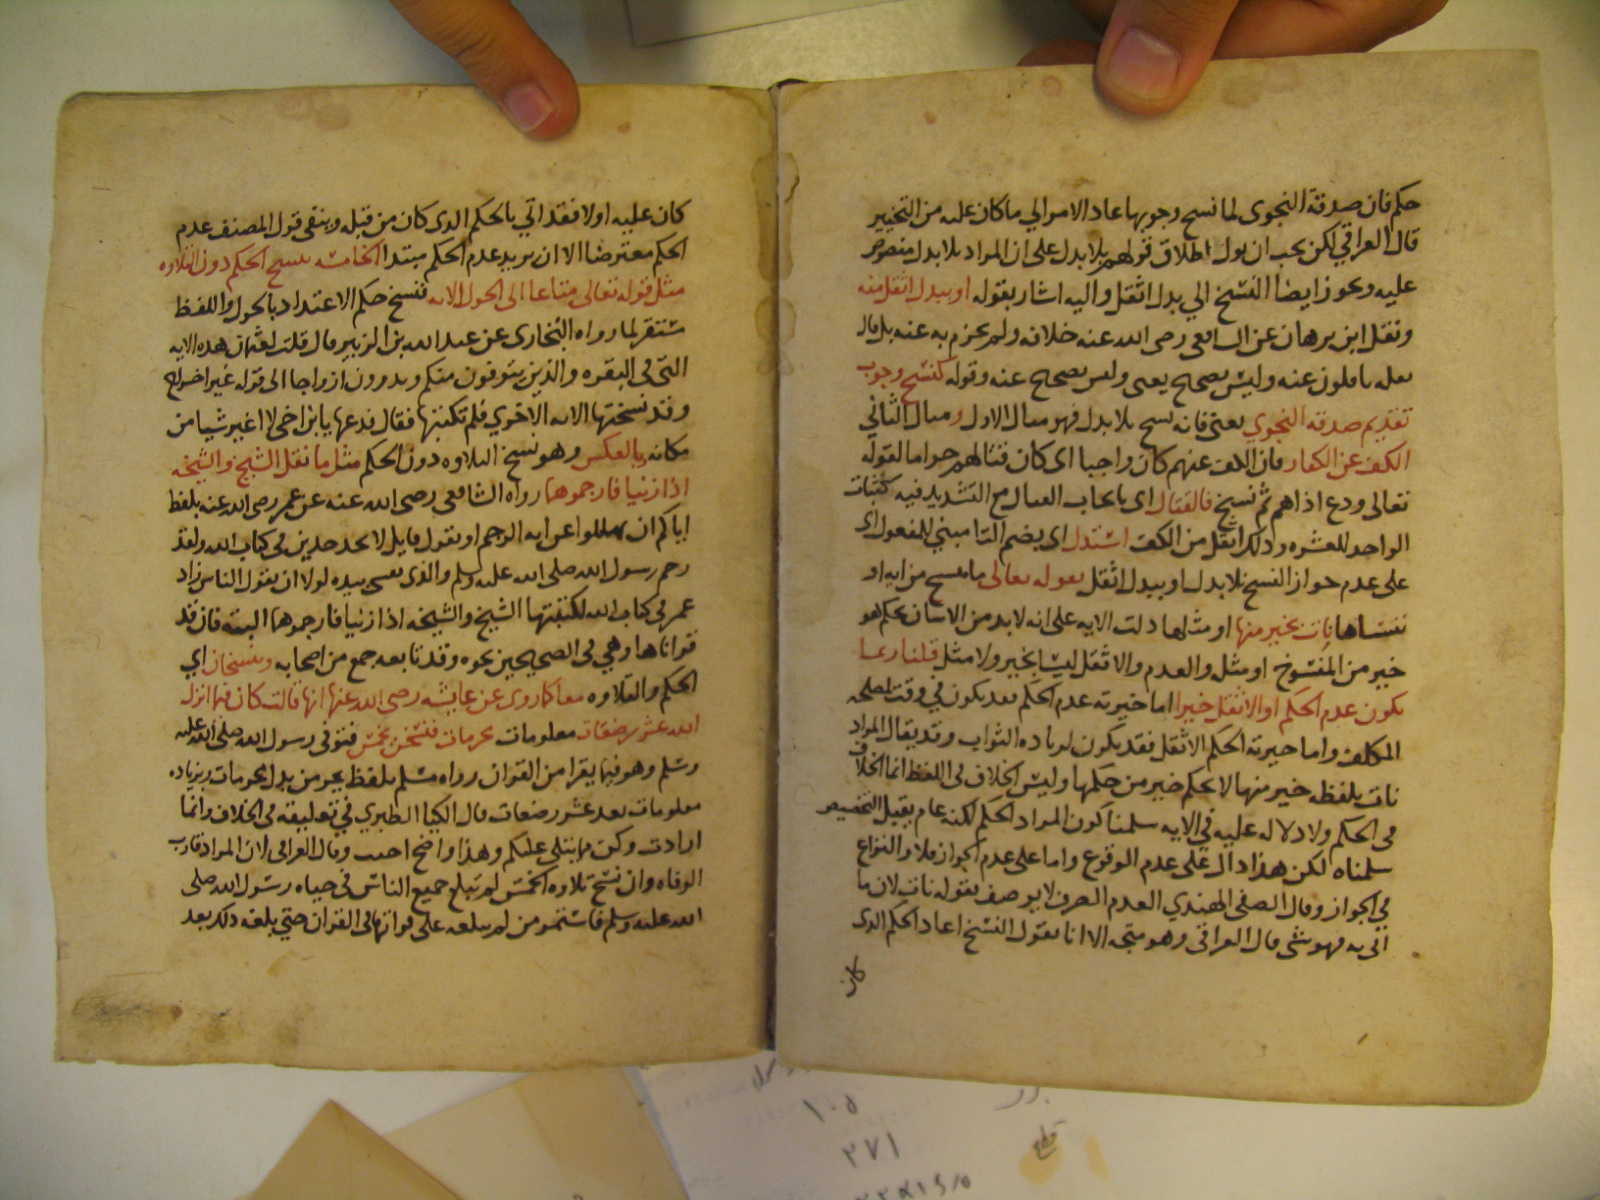 حكم فان صدقة النجوى لما نسخ وجوبها عاد الامر الي ما كان عليه من التخيير
قال العراقي لكن يجب ان يول اطلاق قولهم بلا بدل على ان المراد بلا بدل منصوص
عليه ويجوز ايضا النسخ الي بدل اثقل واليه اشار بقوله او ببدل اثقل منه
ونقل ابن برهان عن الشافعي رضى الله عنه خلافه ولم يجزم به عنه بل قال
نقله ناقلون عنه وليس بصحيح يعنى وليس بصحيح عنه وقوله كنسخ وجوب
تقديم صدقة النجوي يعنى فانه نسخ بلا بدل فهو مثال الاول ومثال الثاني
الكف عن الكفار فان الكف عنهم كان واجبا اى كان قتالهم حراما لقوله
تعالى ودع اذاهم ثم نسخ فالقتال اى بايجاب القتال مع التشديد فيه كثبات
الواحد للعشره وذلك اثقل من الكف استدل اى بضم التا مبني للمفعول اى
على عدم جواز النسخ بلا بدل او ببدل اثقل بقوله تعالى ما ننسخ من ايه او
ننساها نات بخير منها او مثلها دلت الايه على انه لا بد من الاتيان بحكم هو
خير من المنسوخ او مثل والعدم والاثقل ليسا بخير ولا مثل قلنا ربما
يكون عدم الحكم او الاثقل خيرا اما خيرية عدم الحكم فقد يكون في وقت لمصلحه
المكلف واما خيرية الحكم الاثقل فقد يكون لزياده الثواب وقد يقال المراد
نات بلفظه خير منها لا بحكم خير من حكمها وليس الخلاف في اللفظ انما الخلاف
في الحكم ولا دلاله عليه في الايه سلمنا كون المراد الحكم لكنه عام يقبل التخصيص
سلمناه لكن هذا دال على عدم الوقوع واما على عدم الجواز فلا والنزاع
في الجواز وقال الصفى الهندي العدم الصرف لا يوصف بقوله نات لان ما
اتى به فهو شى قال العراقى وهو متجه الا انا نقول النسخ اعاد الحكم الذى
كان
كان عليه اولا فقد اتي بالحكم الذى كان من قبله ويبقى قول المصنف عدم
الحكم معترضا الا ان يريد عدم الحكم مبتدا الخامسه ينسخ الحكم دون التلاوه
مثل قوله تعالى متاعا الى الحول الايه فنسخ حكم الاعتداد بالحول واللفظ
مستقر لما رواه البخارى عن عبد الله بن الزبير قال قلت لعثمان هذه الايه
التى في البقره والذين يتوفون منكم ويذرون ازواجا الى قوله غير اخراج
وقد نسختها الايه الاخري فلم تكتبها فقال ندعها يا بن اخي لا اغير شيا من
مكانه وبالعكس وهو نسخ التلاوه دون الحكم مثل ما نقل الشيخ والشيخه
اذا زنيا فارجموهما رواه الشافعى رضى الله عنه عن عمر رضى الله عنه بلفظ
اياكم ان تهلكوا عن ايه الرجم او يقول قايل لا نجد حدين في كتاب الله ولقد
رجم رسول الله صلى الله عليه وسلم والذى نفسى بيده لولا ان يقول الناس زاد
عمر في كتاب الله لكتبتها الشيخ والشيخه اذا زنيا فارجموهما البته فان قد
قراناها وهي فى الصحيحين بنحوه وقد تابعه جمع من اصحابه وينسخان اي
الحكم والتلاوه معا كما روى عن عايشه رضى الله عنها انها قالت كان فيما انزل
الله عشر رضعات معلومات يحرمات فنسخن بخمس فتوفى رسول الله صلى الله عليه
وسلم وهو فيما يقرا من القران رواه مسلم بلفظ يحرمن بدل محرمات وبزياده
معلومات بعد عشر رضعات قال الكيا الطبري في تعليقه فى الخلاف وانما
ارادت وكن مما يتلى عليكم وهذا واضح وقال العراقى لان المراد قارب
الوفاه وان نسخ تلاوه الخمس لم تبلغ جميع الناس فى حياه رسول الله صلى
الله عليه وسلم فاستمر من لم يبلغه على قراتها فى القران حتي بلغه ذلك بعد
١٠٥
٢٧١